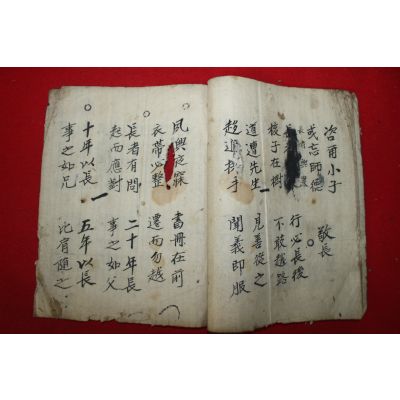 咨爾小子 敬長
或忘師德
行必長後
子在樹 不敢越路
道遭先生 見善從之
趨進拱手 聞義即服
夙興夜寐 書冊在前
衣帶必整 還而勿越
長者有問 二十年長
起而應對 事之如父
十年以長 五年以長
事之如兄 比肩隨之